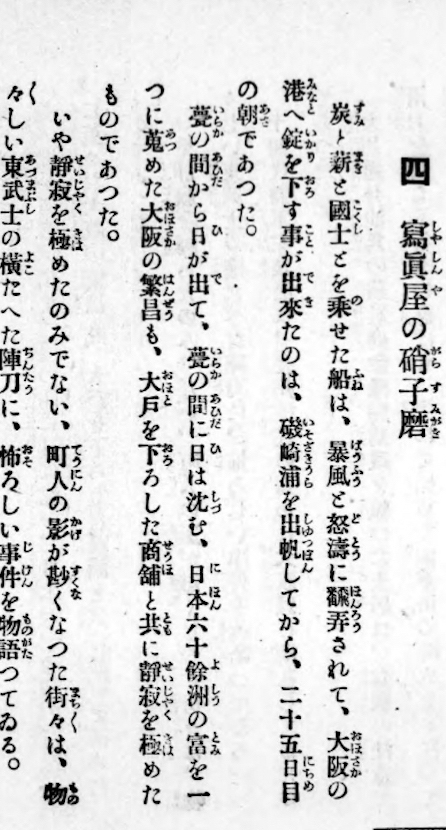 四　寫眞屋の硝子磨
炭と薪と國士とを乗せた船は、暴風と怒濤に飜弄されて、大阪の
港へ錠を下す事が出來たのは、磯崎浦を出帆してから、二十五日目
の朝であつた。
甍の間から日が出て、甍の間に日は沈む、日本六十餘洲の富を一
つに蒐めた大阪の繁昌も、大戸を下ろした商舖と共に靜寂を極めた
ものであつた。
いや靜寂を極めたのみでない、町人の影が尠くなつた街々は、物
々しい東武士の横たへた陣刀に、怖ろしい事件を物語つてゐる。